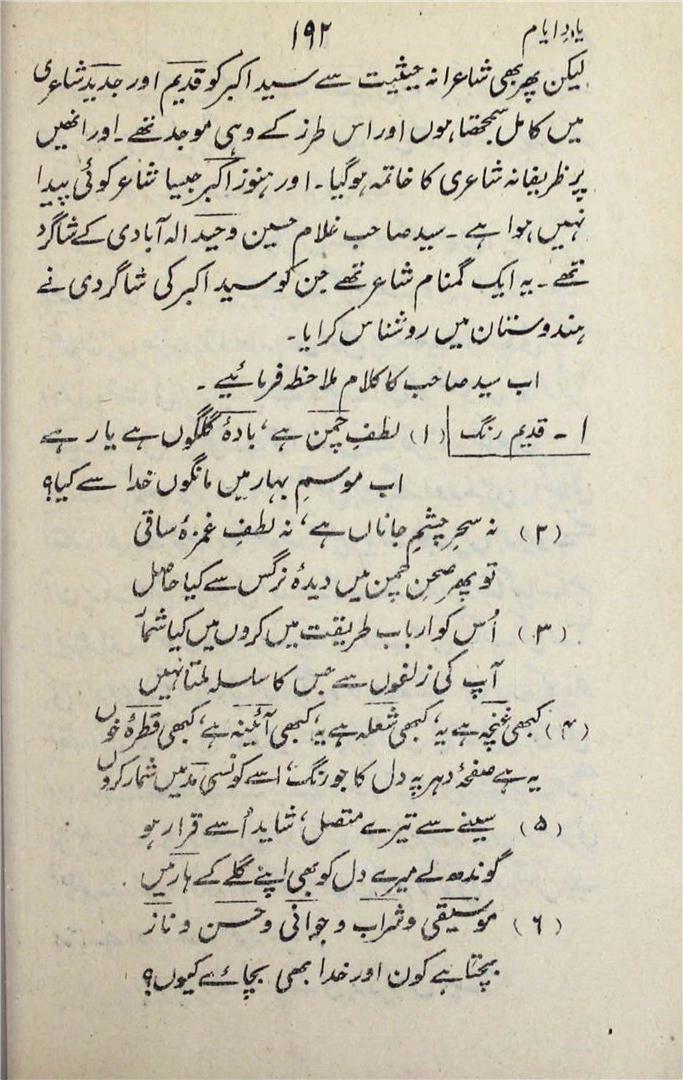 یادِ ایام
۱۹۲
لیکن پھر بھی شاعرانہ حیثیت سے سید اکبر کو قدیم اور جدید شاعری
میں کامل سمجھتا ہوں اور اس طرز کے وہی موجد تھے۔ اور انھیں
پر ظریفانہ شاعری کا خاتمہ ہوگیا۔ اور ہنوز اکبر جیسا شاعر کوئی پیدا
نہیں ہوا ہے۔ سید صاحب غلام حسین وحید الہ آبادی کے شاگرد
تھے۔ یہ ایک گمنام شاعر تھے جن کو سید اکبر کی شاگردی نے
ہندوستان میں روشناس کرایا۔
اب سید صاحب کا کلام ملاحظہ فرمائیے۔
۱۔ قدیم رنگ (۱) لطفِ چمن ہے، بادۂ گلگوں ہے یار ہے
اب موسمِ بہار میں مانگوں خدا سے کیا؟
(۲) نہ سحرِ چشمِ جاناں ہے، نہ لطفِ غمزۂ ساقی
تو پھر صحنِ چمن میں دیدۂ نرگس سے کیا حاصل
(۳) اُس کو اربابِ طریقت میں کروں میں کیا شمار
آپ کی زلفوں سے جس کا سلسلہ ملتا نہیں
(۴) کبھی غنچہ ہے یہ، کبھی شعلہ ہے یہ، کبھی آئینہ ہے، کبھی قطرۂ خوں
یہ ہے صفحۂ دہر پہ دل کا جو رنگ، اسے کونسی مد میں شمار کروں
(۵) سینے سے تیرے متصل، شاید اُسے قرار ہو
گوندھ لے میرے دل کو بھی اپنے گلے کے ہار میں
(۶) موسیقی و شراب و جوانی و حسن و ناز
بچتا ہے کون اور خدا بھی بچائے کیوں؟